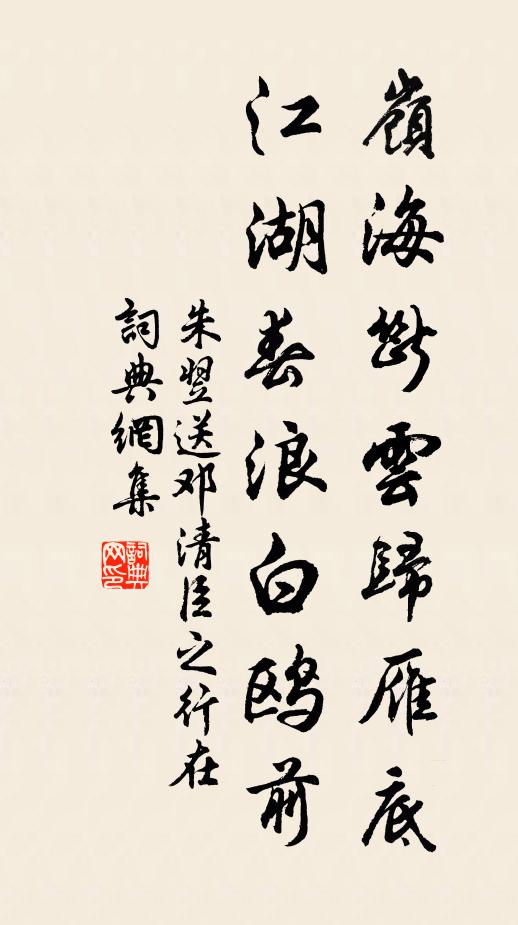 嶺海斷雲歸雁底
江湖春浪白鷗前
朱翌送邓清臣之行在
詞典網集
詞典网印